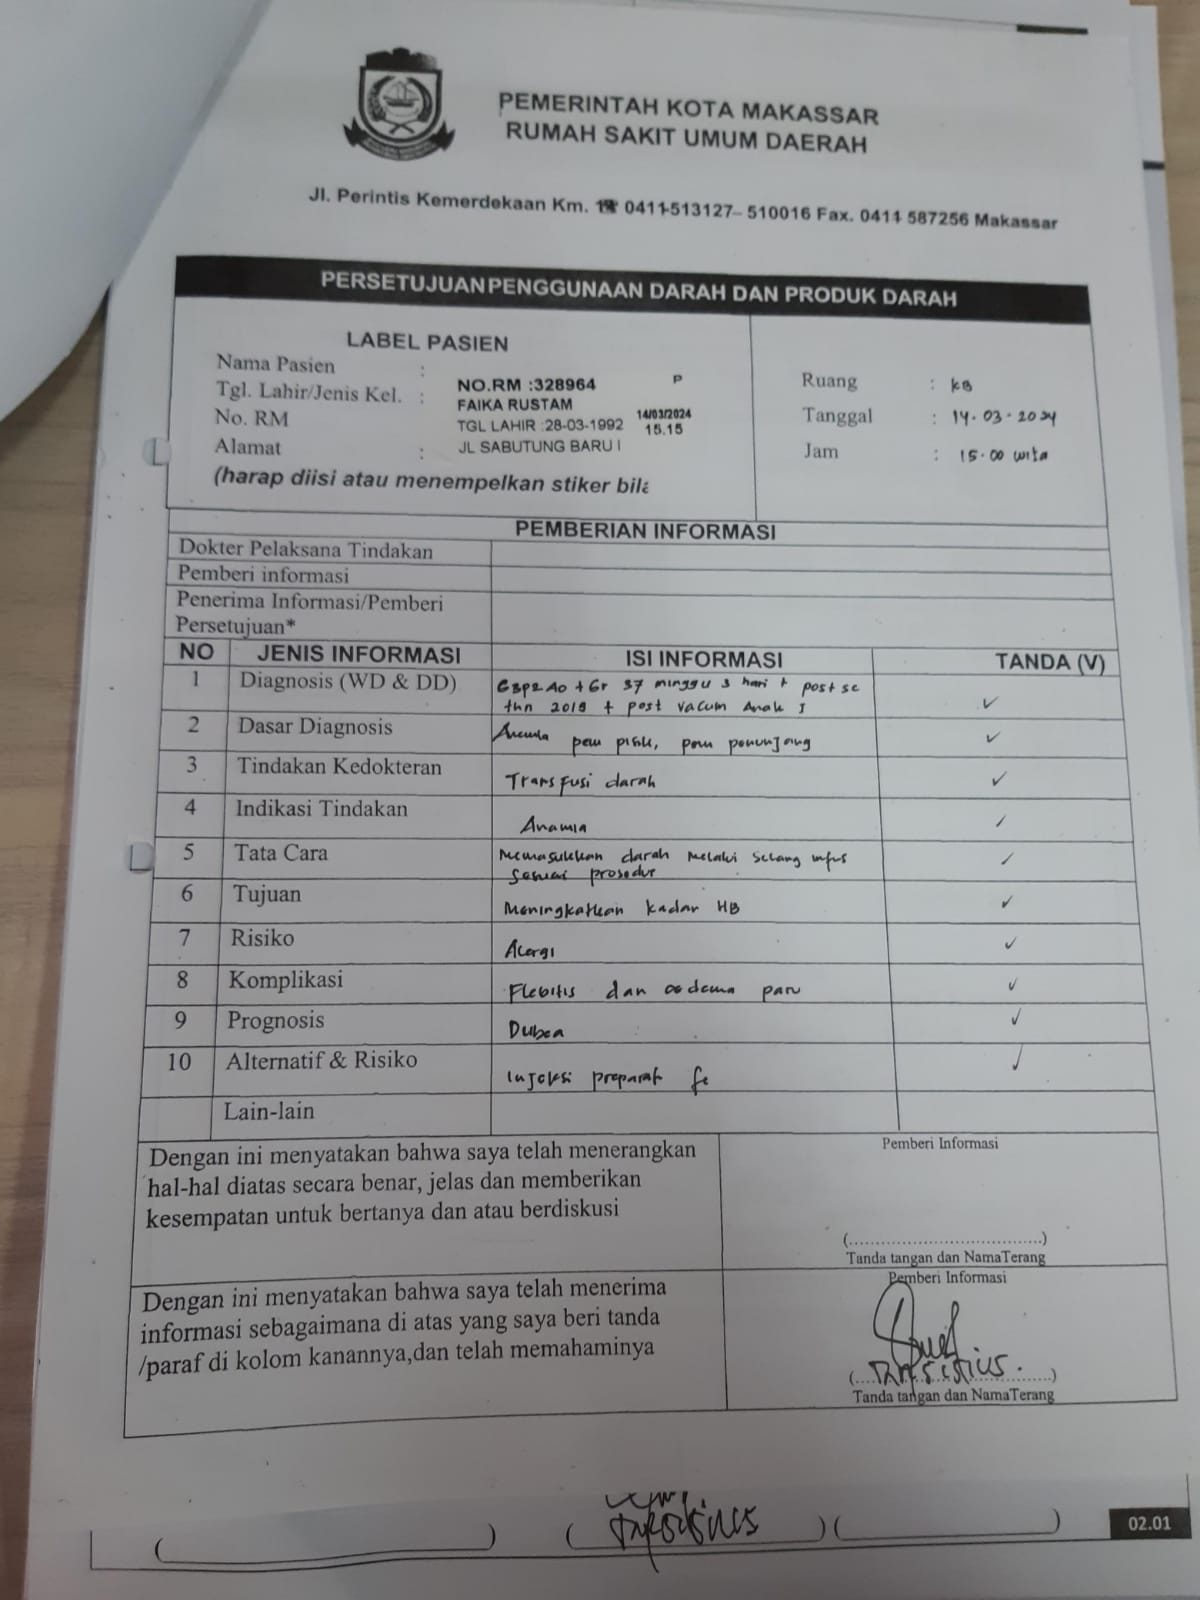 PEMERINTAH KOTA MAKASSAR
RUMAH SAKIT UMUM DAERAH
Jl. Perintis Kemerdekaan Km. ☎ 0411-513127– 510016 Fax. 0411 587256 Makassar
PERSETUJUAN PENGGUNAAN DARAH DAN PRODUK DARAH
LABEL PASIEN
Nama Pasien :
Tgl. Lahir/Jenis Kel. :
No. RM
Alamat :
NO.RM :328964 P
FAIKA RUSTAM
TGL LAHIR :28-03-1992
14/03/2024
15.15
JL SABUTUNG BARU I
(harap diisi atau menempelkan stiker bila
Ruang : KB
Tanggal : 14-03-2024
Jam : 15.00 wita
PEMBERIAN INFORMASI
Dokter Pelaksana Tindakan
Pemberi informasi
Penerima Informasi/Pemberi
Persetujuan*
NO JENIS INFORMASI ISI INFORMASI TANDA (V)
1 Diagnosis (WD & DD) G3P2A0 + Gr 37 minggu 3 hari + post sc
thn 2018 + post vacum Anak I ✓
2 Dasar Diagnosis pem pisik, pem penunjang ✓
3 Tindakan Kedokteran Transfusi darah ✓
4 Indikasi Tindakan Anamia ✓
5 Tata Cara Memasukkan darah melalui selang infus
sesuai prosedur ✓
6 Tujuan Meningkatkan kadar HB ✓
7 Risiko Alergi ✓
8 Komplikasi Flebitis dan oedema paru ✓
9 Prognosis Dubea ✓
10 Alternatif & Risiko Injeksi preparat fe ✓
Lain-lain
Dengan ini menyatakan bahwa saya telah menerangkan
hal-hal diatas secara benar, jelas dan memberikan
kesempatan untuk bertanya dan atau berdiskusi
Pemberi Informasi
(....................................)
Tanda tangan dan NamaTerang
Dengan ini menyatakan bahwa saya telah menerima
informasi sebagaimana di atas yang saya beri tanda
/paraf di kolom kanannya,dan telah memahaminya
Pemberi Informasi
Tanda tangan dan NamaTerang
02.01